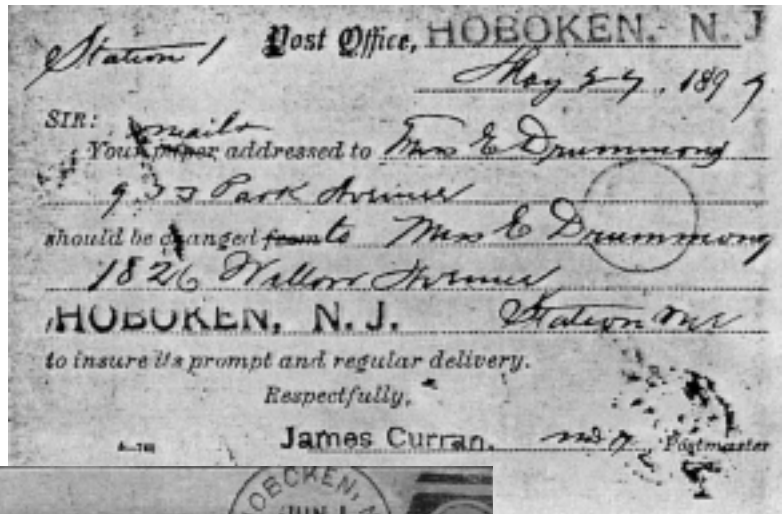 Station 1 Post Office, HOBOKEN. N. J
May 27, 1899
SIR:
mails
Your paper addressed to Mrs E Drummong
933 Park Avenue
should be changed from to Mrs E Drummong
1826 Willow Avenue
HOBOKEN, N. J. Station
to insure its prompt and regular delivery.
Respectfully,
James Curran. Postmaster
HOBOKEN, N
JUN 1